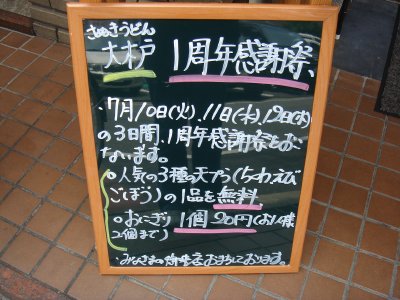 さぬきうどん
大木戸 1周年感謝祭、
7月10日(火)、11日(水)、12日(木)
の3日間、1周年感謝祭をおこ
ないます。
○人気の3種の天プラ(ちくわ、えび
ごぼう)の1品を無料
○おにぎり1個20円(お1人様
2個まで)
みなさまの御来店おまちしております。